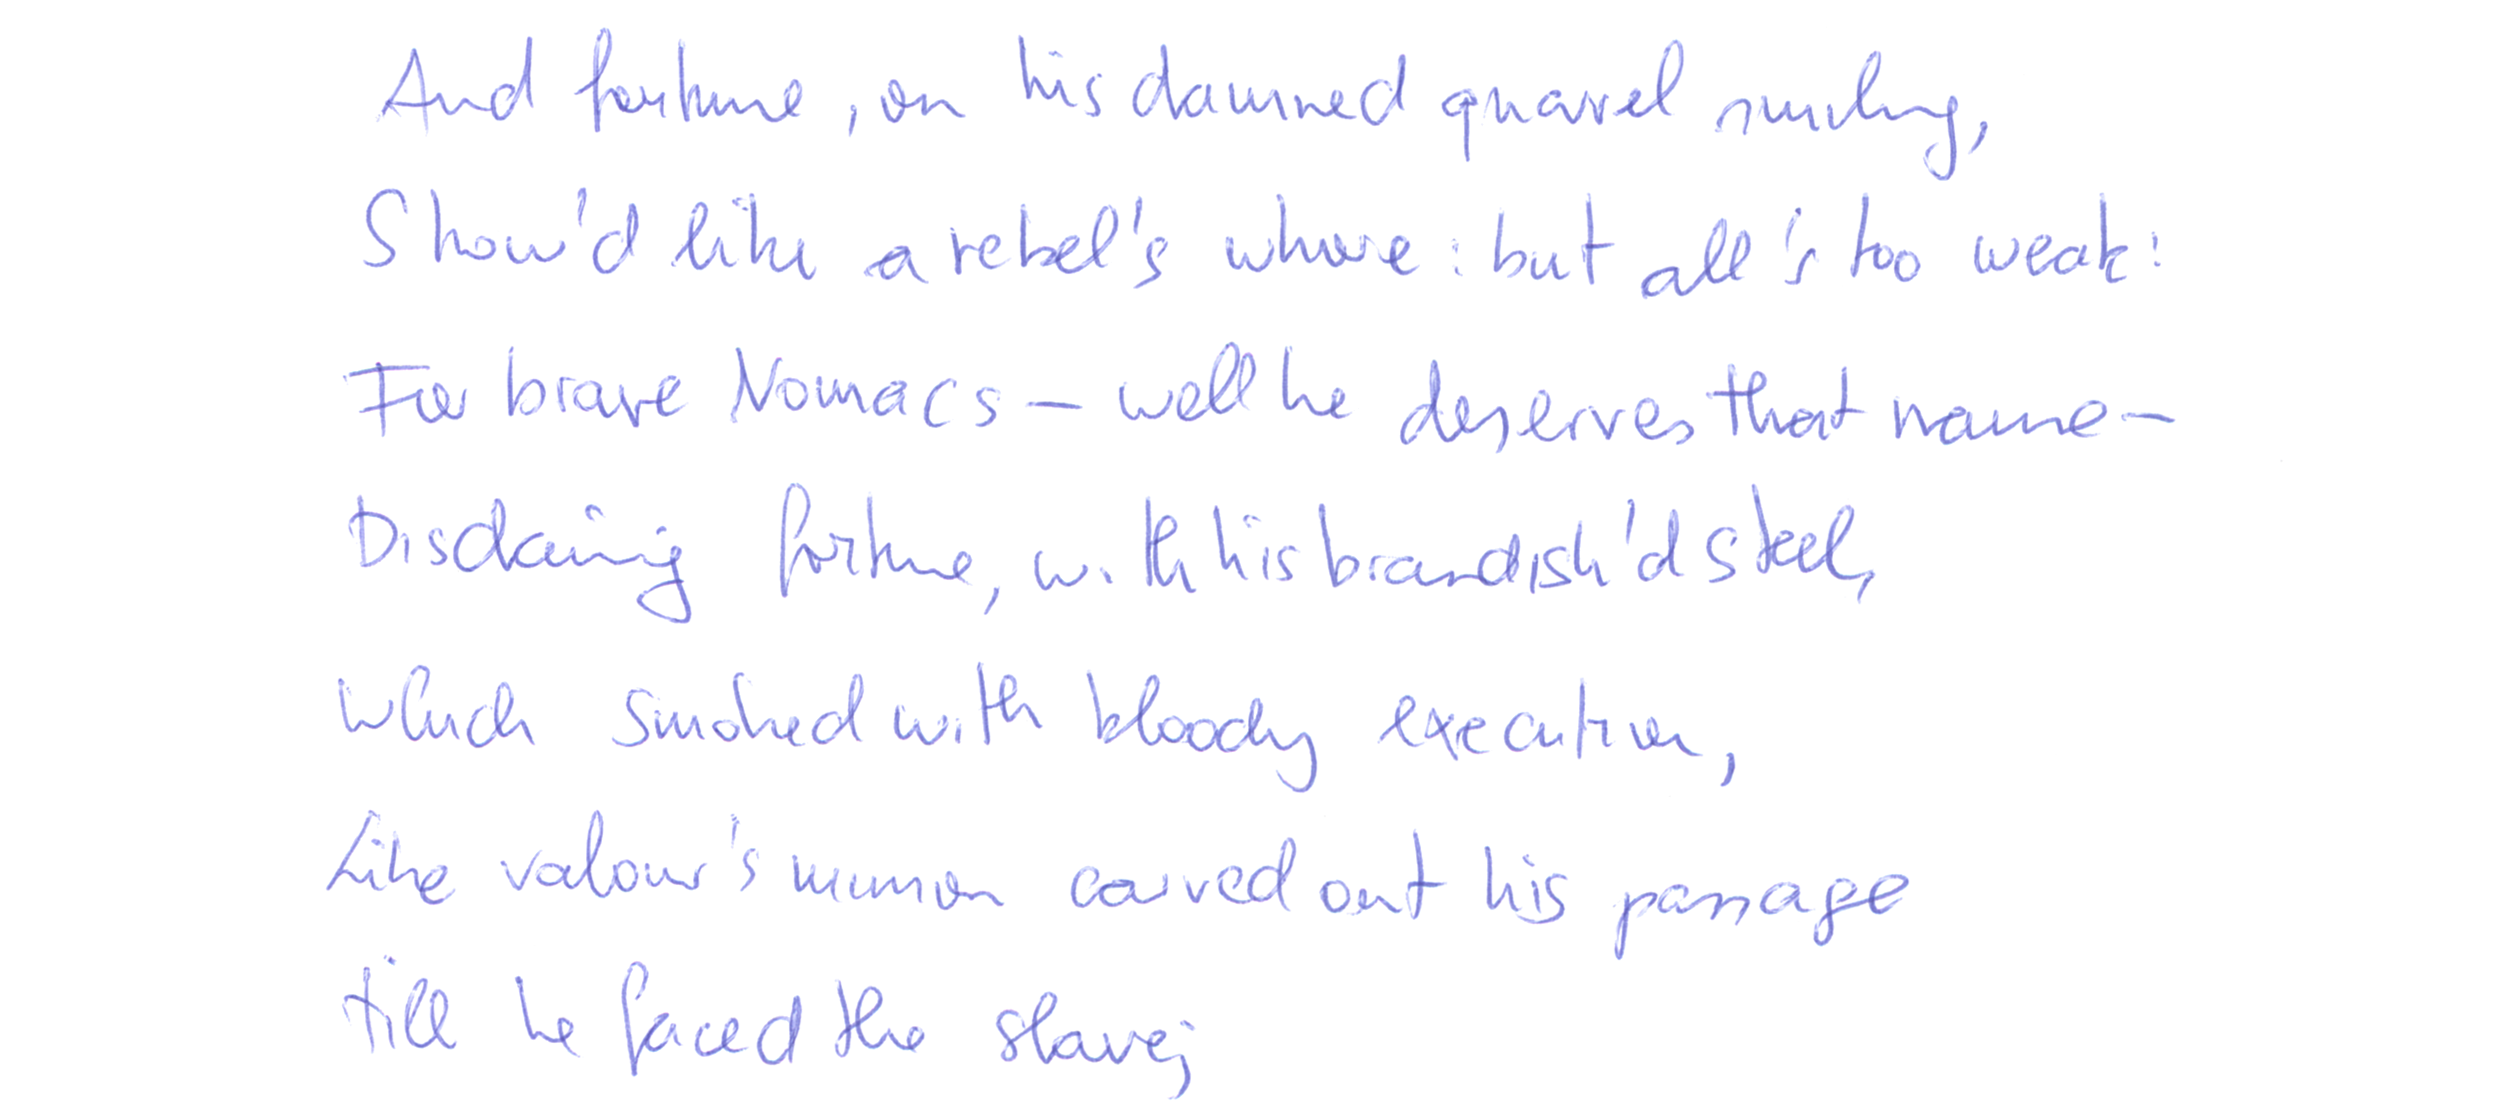 And fortune, on his damned quarrel smiling,
Show'd like a rebel's whore: but all's too weak:
For brave Nomacs – well he deserves that name –
Disdaining fortune, with his brandish'd steel,
Which smoked with bloody execution,
Like valour's minion carved out his passage
till he faced the slave;